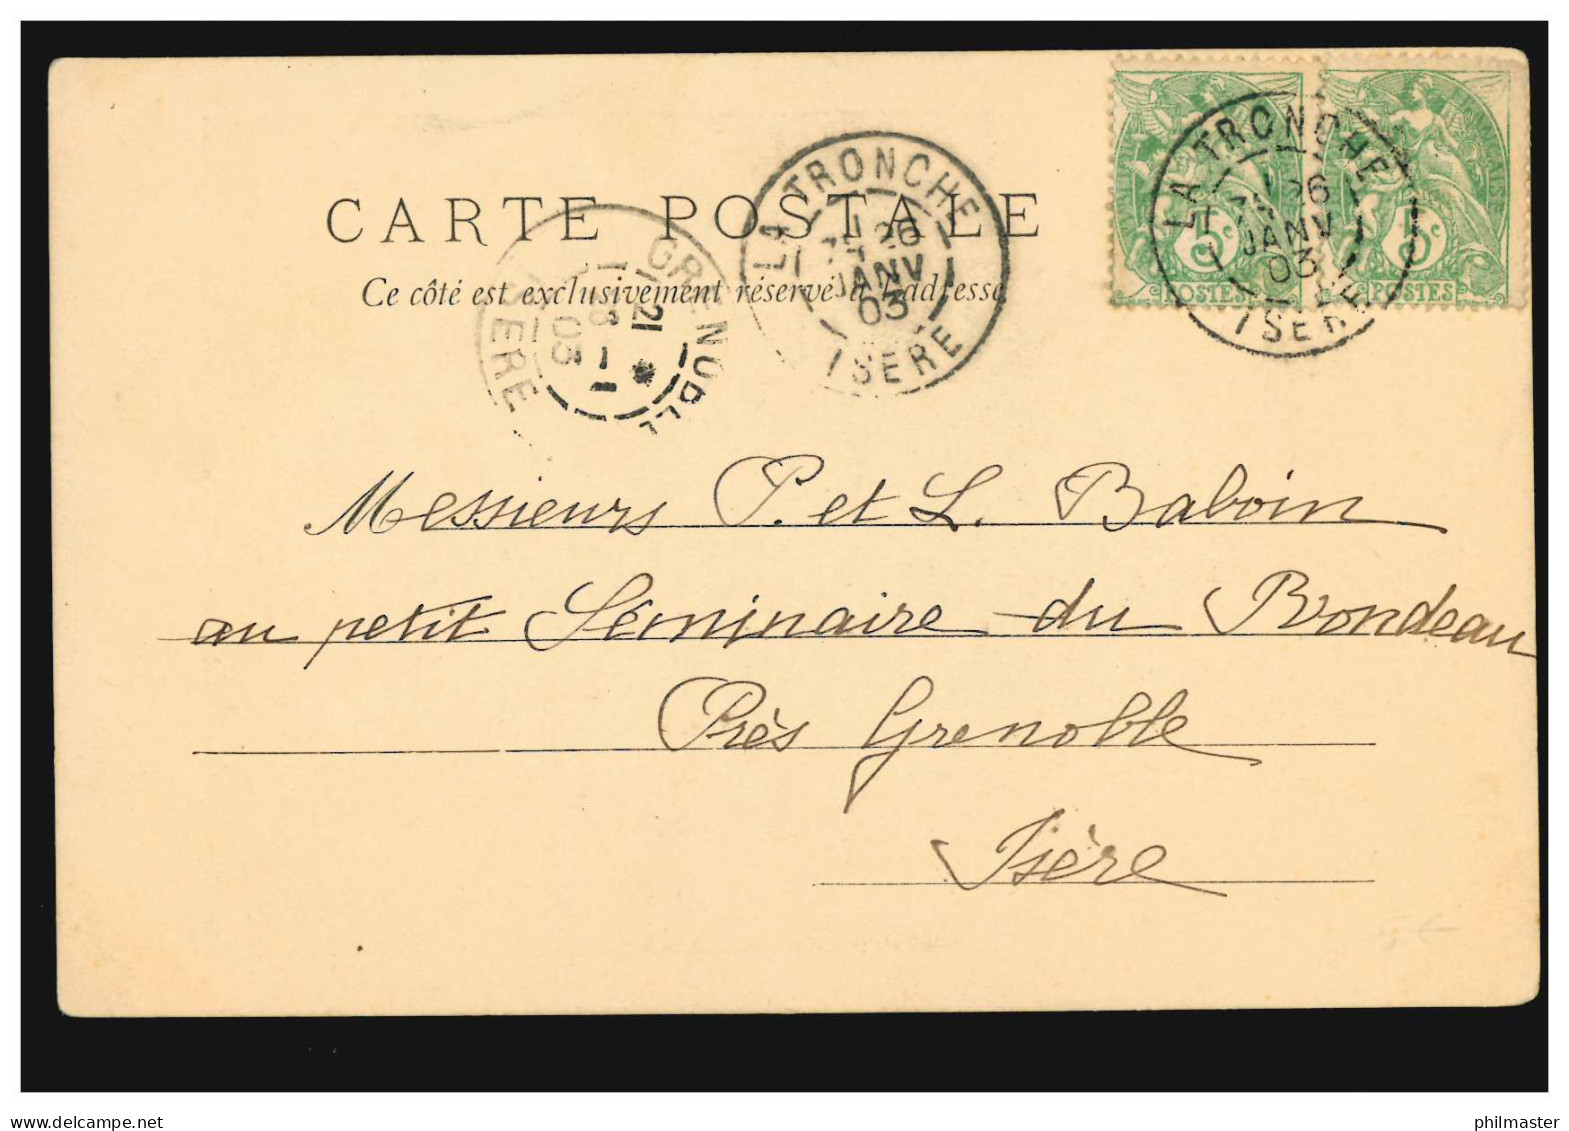 CARTE POSTALE
Ce côté est exclusivement réservé à l'adresse
LA TRONCHE
26
JANV
03
ISERE
LA TRONCHE
26
JANV
03
ISERE
5c
POSTES
5c
POSTES
GRENOBLE
21
03
ISERE
Messieurs P. et L. Baboin
au petit Séminaire du Rondeau
Près Grenoble
Isère
philmaster